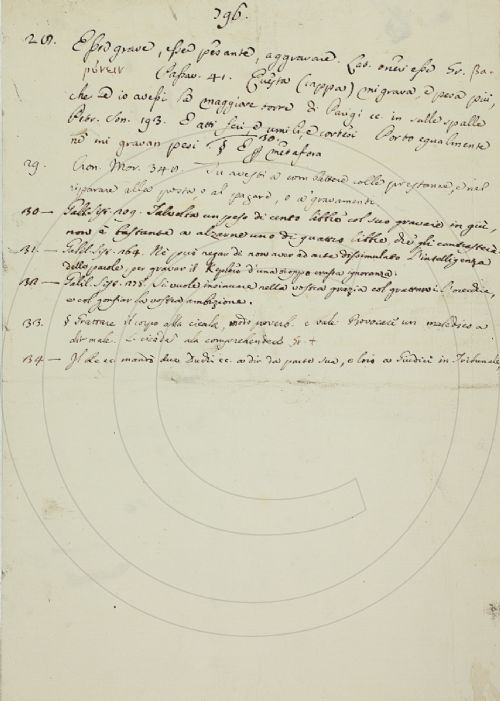 396.
28. Esser grave, esser pesante, aggravare. Lat. oneri esse Gr. βα-
ρύνειν Passav. 41. Questa (cappa) mi grava, e pesa più,
che se io avessi la maggiore torre di Parigi ec. in sulle spalle
Petr. Son. 193. E atti feri, e umili, e cortesi Porto egualmente
né mi gravan pesi § E per metafora
29. Cron. Mor. 349 Tu avesti a combattere colle prestanze, e nel
riparare alla posta, o al pagare, o a gravamento
130 — Galil. Sist. 209. Talvolta un peso di cento libbre col suo gravare in giù,
non è bastante a alzarne uno di quattro libbre, che gli contrasti
131. — Galil. Sist. 164. Nè può negar di non aver ad arte dissimulato l'intelligenza
delle parole, per gravar il Keplero d'una troppo crassa ignoranza.
132 — Galil. Sist. Si vuole insinuare nella vostra grazia col grattarvi il
e col gonfiar la vostra ambizione.
133. § Grattare il corpo alla cicala, modo proverb. e vale Provocare un maledico a
dir male. L. cicadam ala comprehendere Gr. +
134 — Il de ec. mandò due Dudù ec. a dir da parte sua, e loro a Giudici in Tribunale,